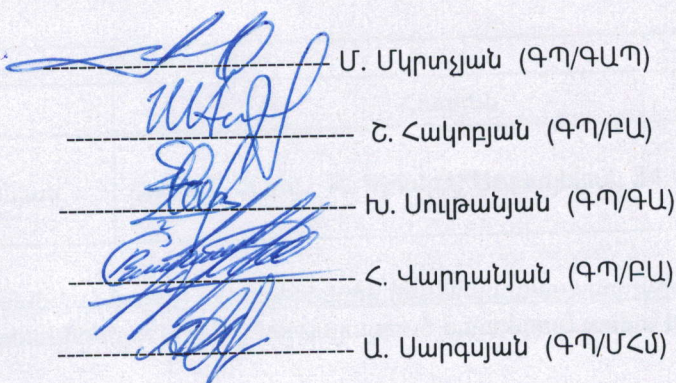 Մ. Մկրտչյան (ԳՊ/ԳԱՊ)
Շ. Հակոբյան (ԳՊ/ԲԱ)
Խ. Սուլթանյան (ԳՊ/ԳԱ)
Հ. Վարդանյան (ԳՊ/ԲԱ)
Ա. Սարգսյան (ԳՊ/ՄՀմ)